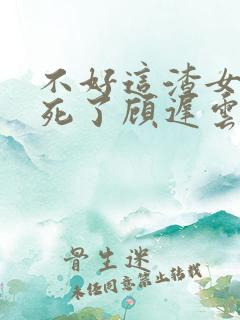 不好這渣女
死了顾遲雲
骨生迷
未经同意禁止转载